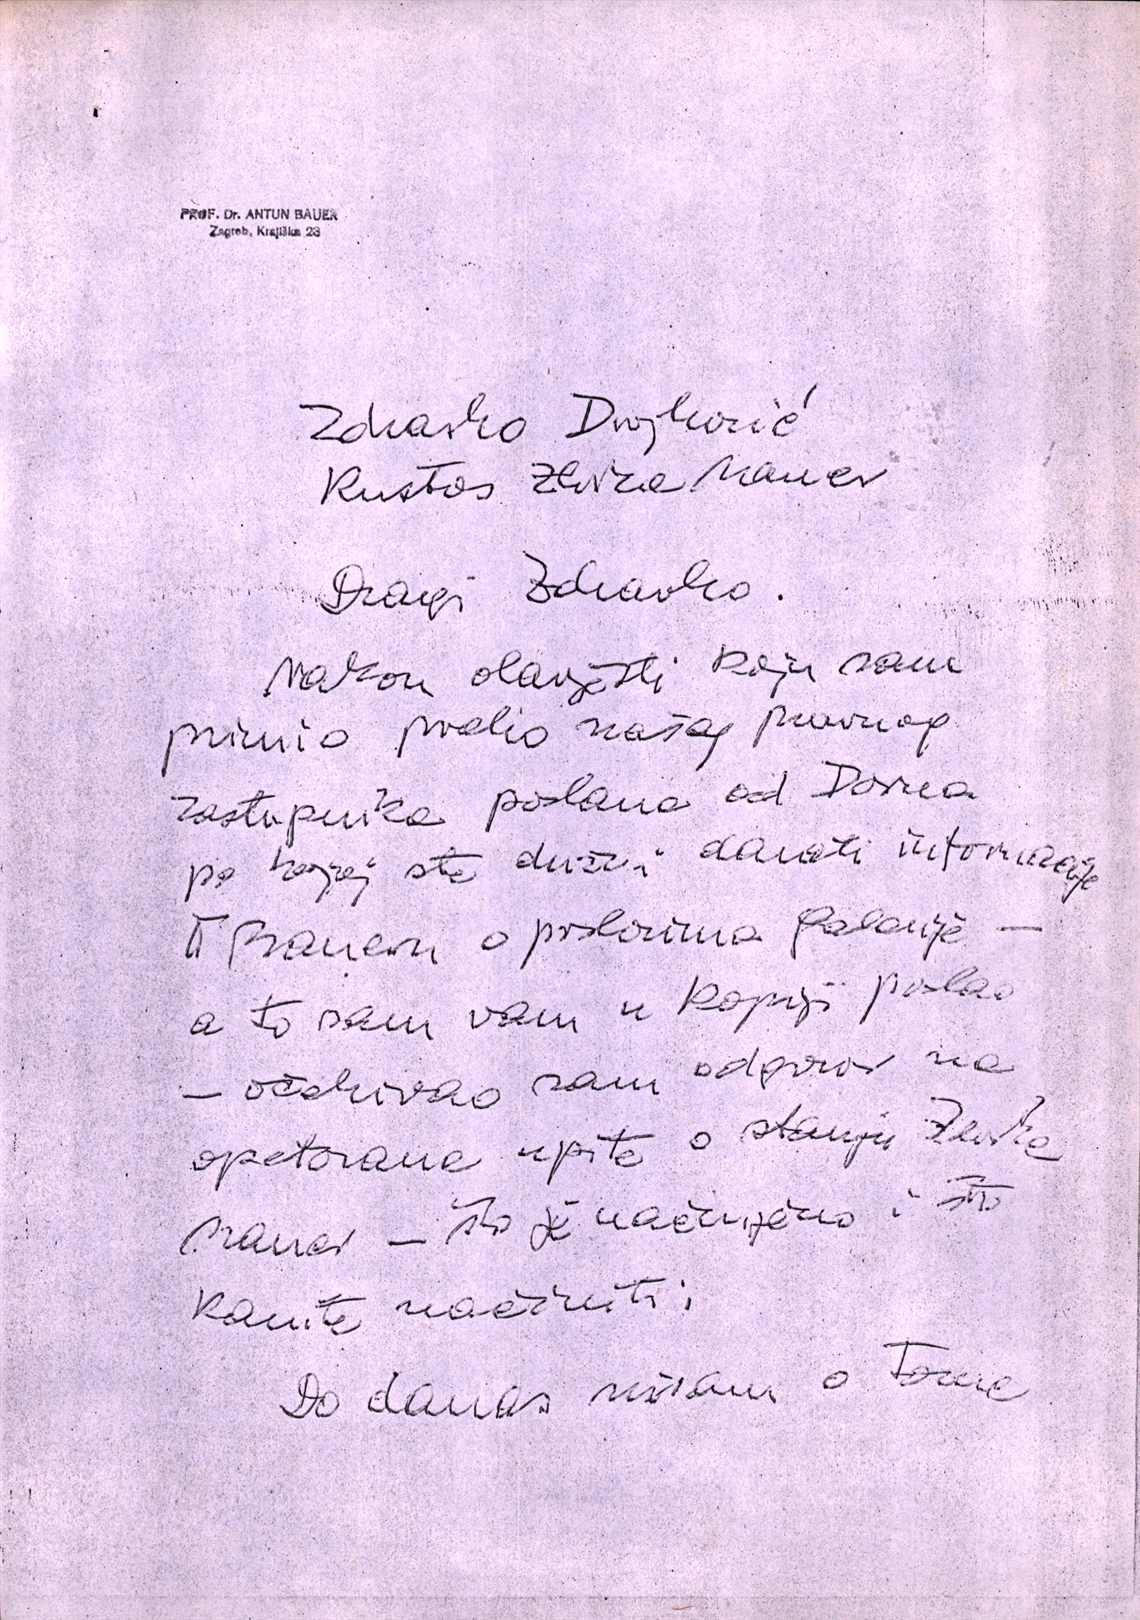 PROF. Dr. ANTUN BAUER
Zagreb, Krajiška 23
Zdravko Dvojković
Kustos Zbirke Bauer
Dragi Zdravko.
Nakon obavijesti koju sam
primio preko našeg pravnog
zastupnika poslana od Doma
po kojoj ste dužni davati informacije
Baueru o poslovima Galerije —
a to sam vam u kopiji poslao
— očekivao sam odgovor na
opetovane upite o stanju Zbirke
Bauer — što je načinjeno i što
kanite načiniti;
Do danas nisam o tome